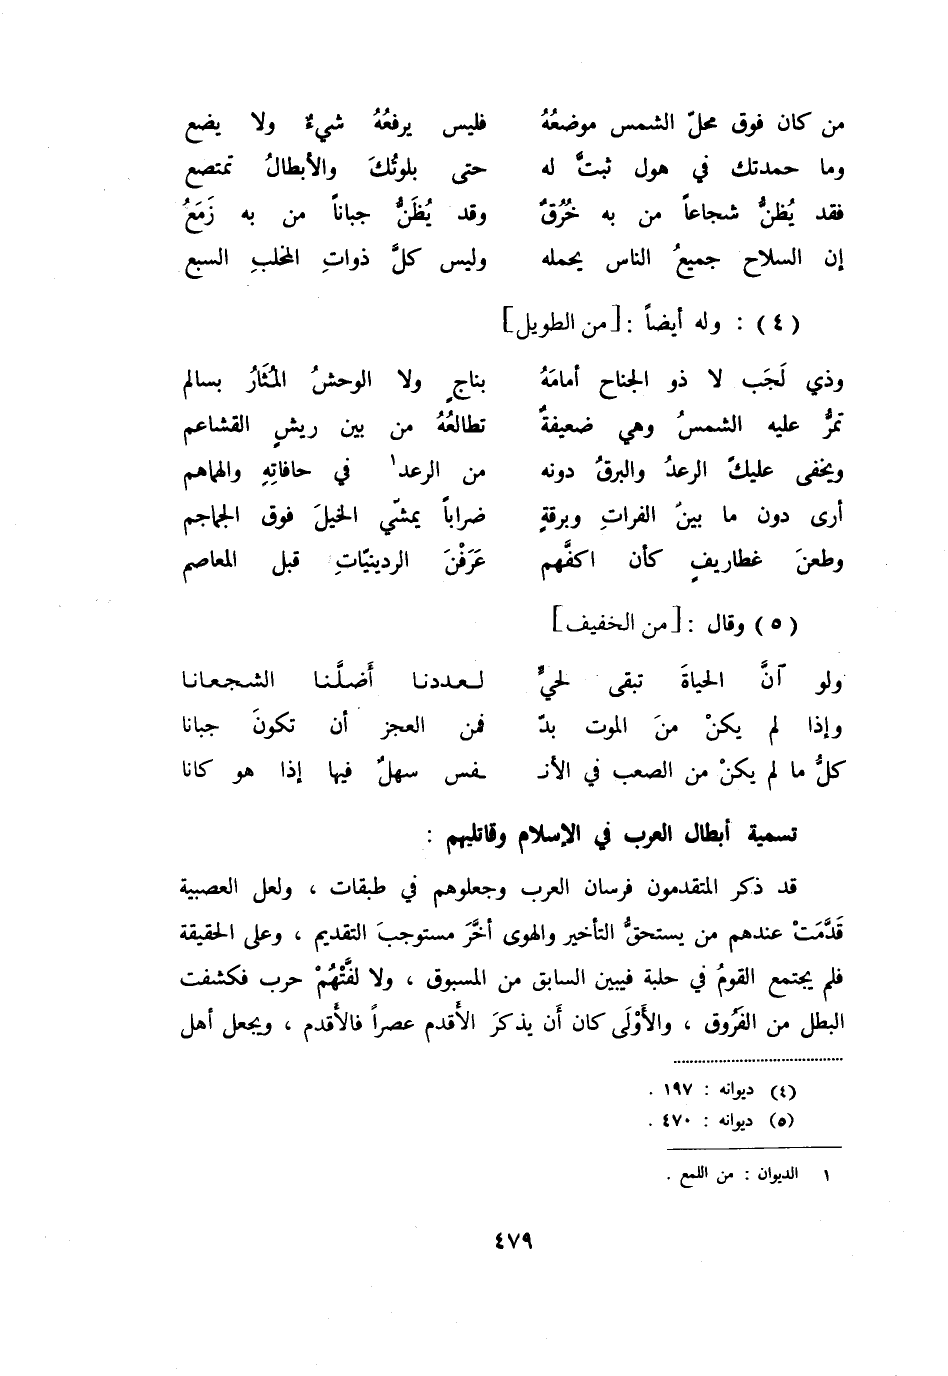 من كان فوق محلّ الشمس موضعُهُ فليس يرفعُهُ شيءٌ ولا يضع
وما حمدتك في هول ثبتَّ له حتى بلوتُكَ والأبطالُ تمتصع
فقد يُظنُّ شجاعاً من به خُرُقٌ وقد يُظَنُّ جباناً من به زَمَعُ
إن السلاح جميعُ الناس يحمله وليس كلَّ ذواتِ المخلبِ السبع
(٤) : وله أيضاً : [من الطويل]
وذي لَجَب لا ذو الجناح أمامَهُ بناجٍ ولا الوحشُ المُثَارُ بسالم
تمرُّ عليه الشمسُ وهي ضعيفةٌ تطالعُهُ من بين ريشِ القشاعم
ويخفى عليكَ الرعدُ والبرقُ دونه من الرعد١ في حافاتِهِ والهماهم
أرى دون ما بينُ الفراتِ وبرقةٍ ضراباً يمشّي الخيلَ فوق الجماجم
وطعنَ غطاريفٍ كأن اكفَّهم عَرَفْنَ الردينيّاتِ قبل المعاصم
(٥) وقال : [من الخفيف]
ولو آنَّ الحياةَ تبقى لحيٍّ لعددنا أَضلَّنا الشجعانا
وإذا لم يكنْ منَ الموت بدّ فمن العجز أن تكونَ جبانا
كلُّ ما لم يكنْ من الصعب في الأنـ ـفس سهلٌ فيها إذا هو كانا
تسمية أبطال العرب في الإسلام وقاتليهم :
قد ذكر المتقدمون فرسان العرب وجعلوهم في طبقات ، ولعل العصبية
قَدَّمَتْ عندهم من يستحقُّ التأخير والهوى أخَّرَ مستوجبَ التقديم ، وعلى الحقيقة
فلم يجتمع القومُ في حلبة فيبين السابق من المسبوق ، ولا لفَّتْهُمْ حرب فكشفت
البطل من الفَرُوق ، والأَوْلَى كان أن يذكرَ الأقدم عصراً فالأقدم ، ويجعل أهل
(٤) ديوانه : ١٩٧ .
(٥) ديوانه : ٤٧٠ .
١ الديوان : من اللمع .
٤٧٩